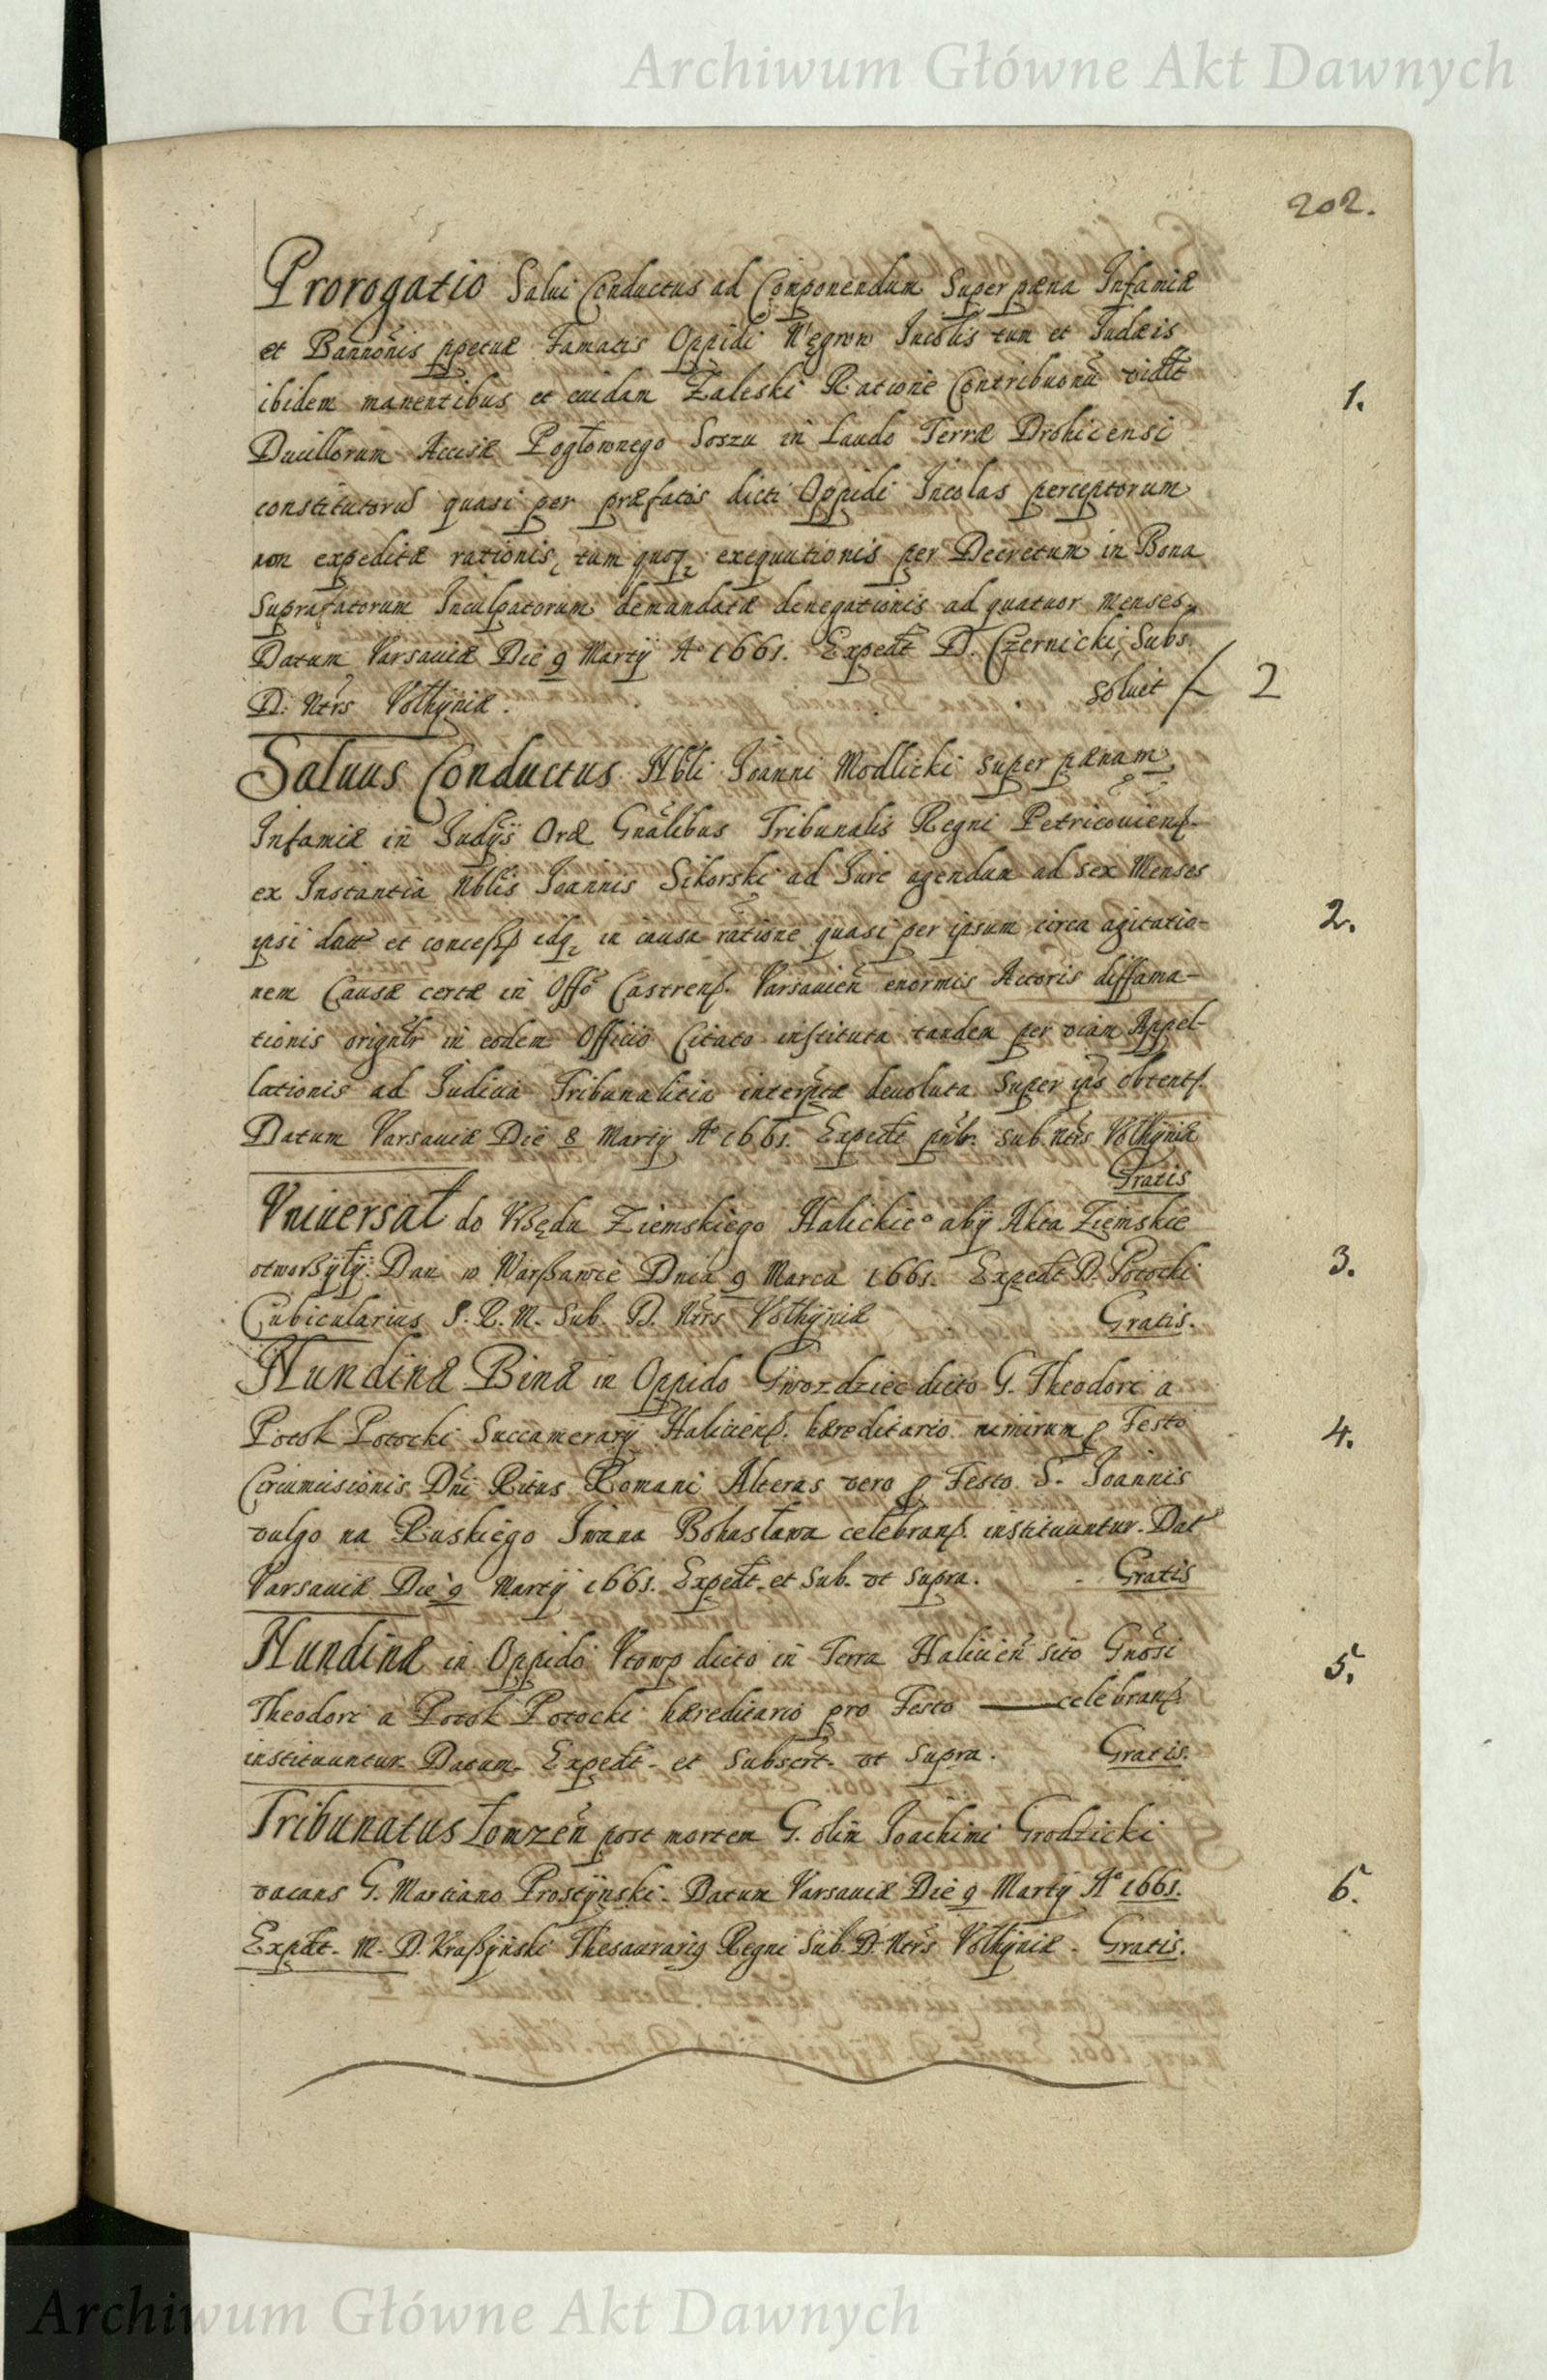 Archiwum Główne Akt Dawnych
202.
Prorogatio Salui Conductus ad Componendum Super pæna Infamiæ
et Bannonis ppetuæ Famatis Oppidi Węgrow Incolis tum et Judæis
ibidem manentibus et cuidam Zaleski Ratione Contribuonu vidlt
1.
Ducillorum Accisæ Pogłownego Soszu in Laudo Terræ Drohicensi
constitutoru quasi per præfatos dicti Oppidi Incolas perceptorum
non expeditæ rationis, tum quoq exequutionis per Decretum in Bona
Suprafatorum Inculpatorum demandatæ denegationis ad quatuor menses
Datum Varsauiæ Die 9 Martij Ao 1661. Expedt D. Czernicki, Subs.
D. Ntrs Volhijniæ. soluet f 2
Saluus Conductus Nbli Joanni Modlicki super pænam
Infamiæ in Judijs Ord Gnalibus Tribunalis Regni Petricouiens.
ex Instantia Nblis Joannis Sikorski ad Jure agendum ad sex Menses
ipsi dat et concess idq in causa ratione quasi per ipsum circa agitatio-
2.
nem Causæ certæ in Offo Castrens. Varsauien enormis Actoris diffama-
tionis orignlr in eodem Officio Citato instituta tandem per viam Appel-
lationis ad Judicia Tribunalitia interptæ deuoluta super ips obtent.
Datum Varsauiæ Die 8 Martij Ao 1661. Expedt pntr. sub. Ntrs Volhijniæ
Gratis
Vniuersał do Vrzędu Ziemskiego Halickieo abij Akta Ziemskie
otworzyłÿ. Dan w Warszawie Dnia 9 Marca 1661. Expedt D. Potocki
3.
Cubicularius S. R. M. Sub. D. Ntrs Volhijniæ Gratis.
Nundinæ Binæ in Oppido Gwozdziec dicto G. Theodori a
Potok Potocki Succamerarij Haliciens. hæreditario nimirum p Festo
4.
Circumcisionis Dni Ritus Romani Alteras vero p Festo S. Joannis
vulgo na Ruskiego Iwana Bohasława celebrans. instituuntur. Dat
Varsauiæ Die 9 Martij 1661. Expedt. et Sub. vt supra. - Gratis
Nundinæ in Oppido Vtorop dicto in Terra Halicien sito Gnosi
5.
Theodori a Potok Potocki hæreditario pro Festo —— celebrans.
instituuntur. Datum. Expedt. et Subscrt. vt supra. Gratis.
Tribunatus Łomzen post mortem G. olim Joachimi Grodzicki
vacans G. Martiano Prostÿnski. Datum Varsauiæ Die 9 Martij Ao 1661.
6.
Expdt. M. D. Kraszÿnski Thesaurarij Regni Sub. D. Ntrs Volhijniæ. Gratis.
Archiwum Główne Akt Dawnych